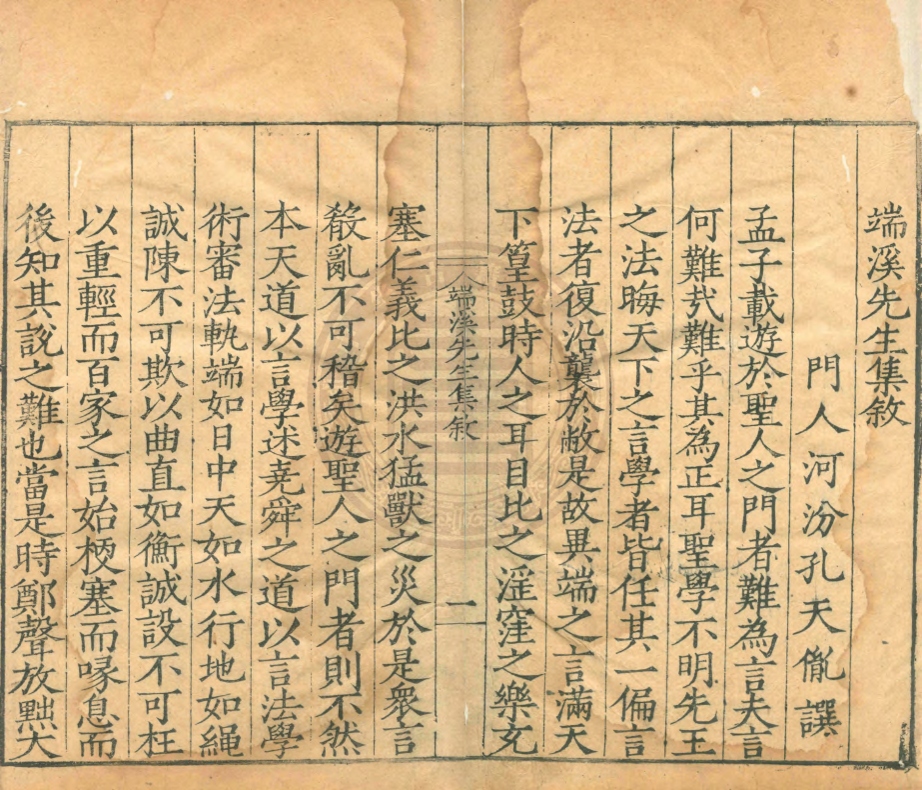 端溪先生集敘
門人河汾孔天胤譔
孟子載遊於聖人之門者難為言夫言
何難㦲難乎其為正耳聖學不明先王
之法晦天下之言學者皆任其一偏言
法者復沿襲於敝是故異端之言滿天
下篁鼓時人之耳目比之淫窪之樂充
端溪先生集敘
一
塞仁義比之洪水猛獸之災於是衆言
殽亂不可稽矣遊聖人之門者則不然
本天道以言學述堯舜之道以言法學
術審法軌端如日中天如水行地如繩
誠陳不可欺以曲直如衡誠設不可枉
以重輕而百家之言始梗塞而喙息而
後知其説之難也當是時鄭聲放黜大